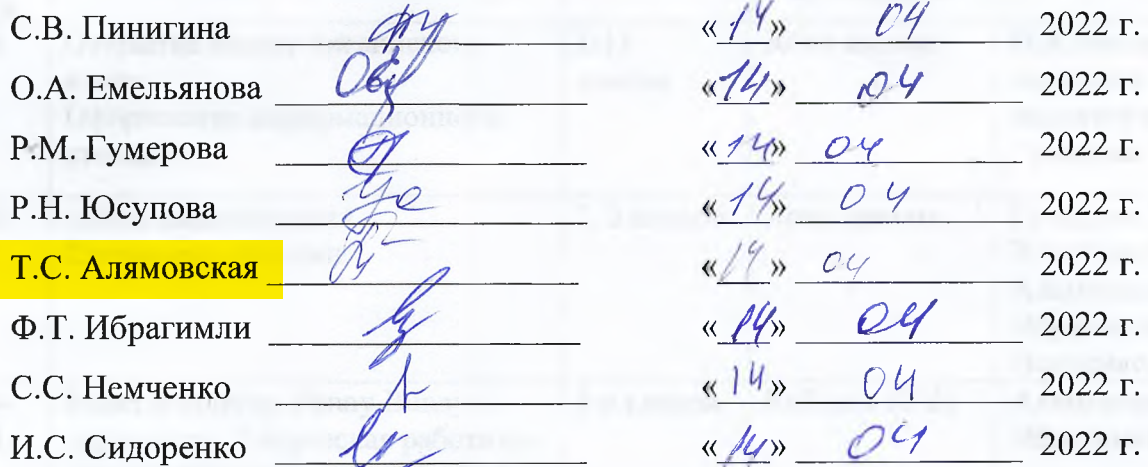 С.В. Пинигина «14» 04 2022 г.
О.А. Емельянова «14» 04 2022 г.
Р.М. Гумерова «14» 04 2022 г.
Р.Н. Юсупова «14» 04 2022 г.
Т.С. Алямовская «14» 04 2022 г.
Ф.Т. Ибрагимли «14» 04 2022 г.
С.С. Немченко «14» 04 2022 г.
И.С. Сидоренко «14» 04 2022 г.